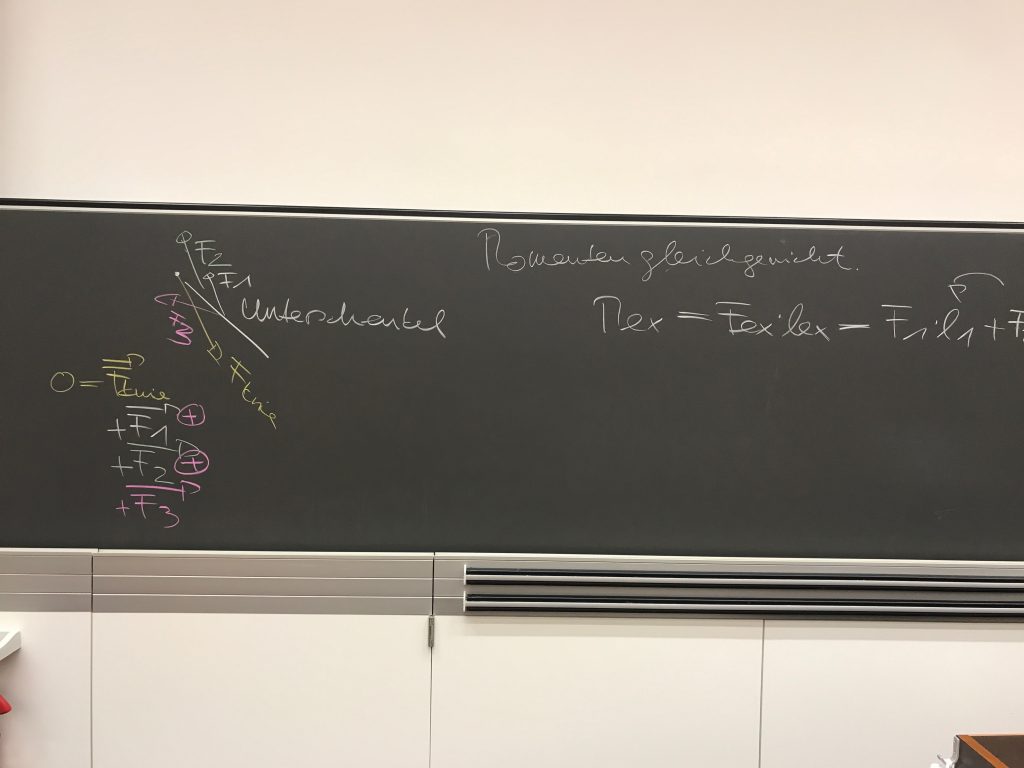 F2
F1
Unterschenkel
F3
FKnie
0 = FKnie
+ F1 +
+ F2 +
+ F3
Momentengleichgewicht.
Mex = Fex·lex = F1·l1 + F